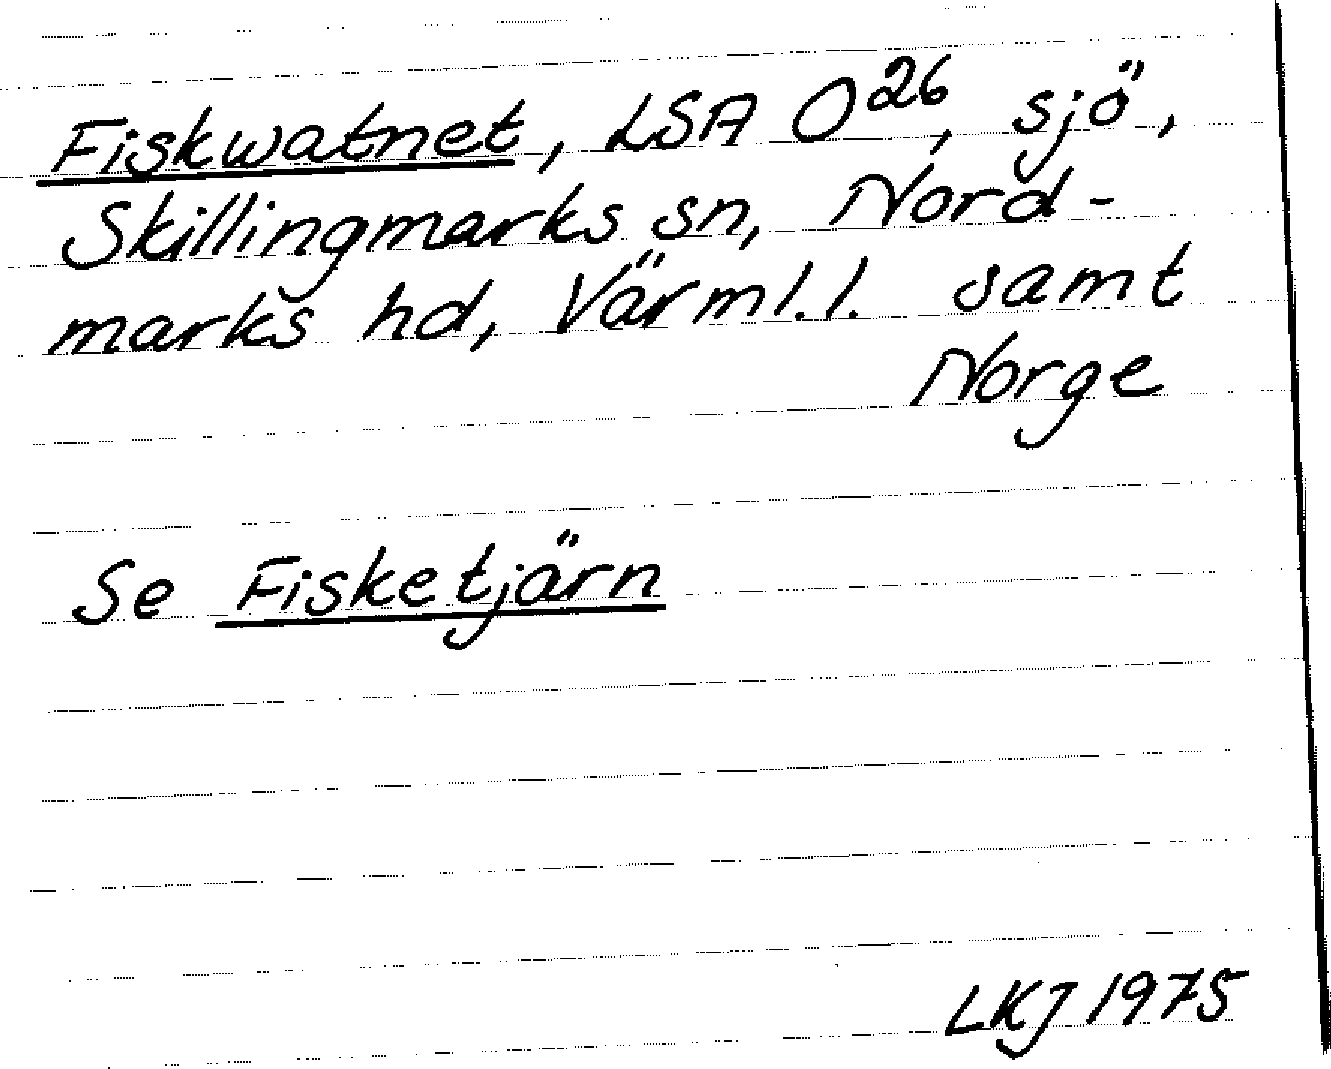 Fiskwatnet, LSA O²⁶, sjö,
Skillingmarks sn, Nord-
marks hd, Värml.l. samt
Norge
Se Fisketjärn
LKJ 1975